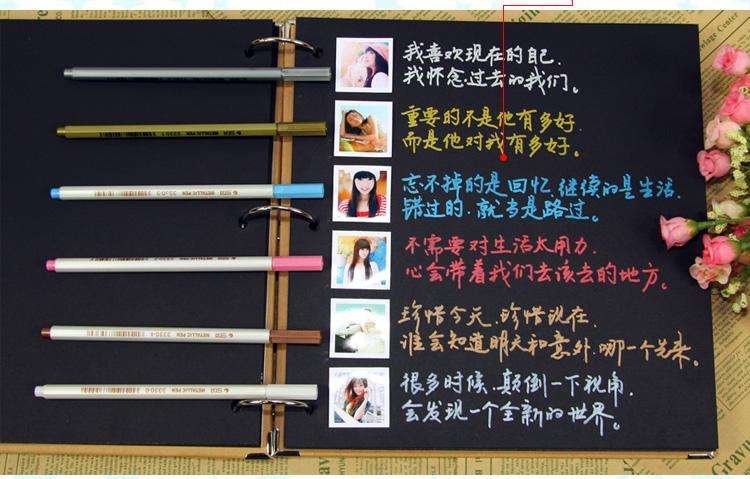 我喜欢现在的自己.
我怀念过去的我们。
重要的不是他有多好.
而是他对我有多好。
忘不掉的是回忆.继续的是生活.
错过的.就当是路过。
不需要对生活太用力.
心会带着我们去该去的地方。
珍惜今天.珍惜现在.
谁会知道明天和意外.哪一个先来。
很多时候.颠倒一下视角.
会发现一个全新的世界。
METALLIC PEN
METALLIC PEN 3330-3
METALLIC PEN
METALLIC PEN 3330-4
METALLIC PEN